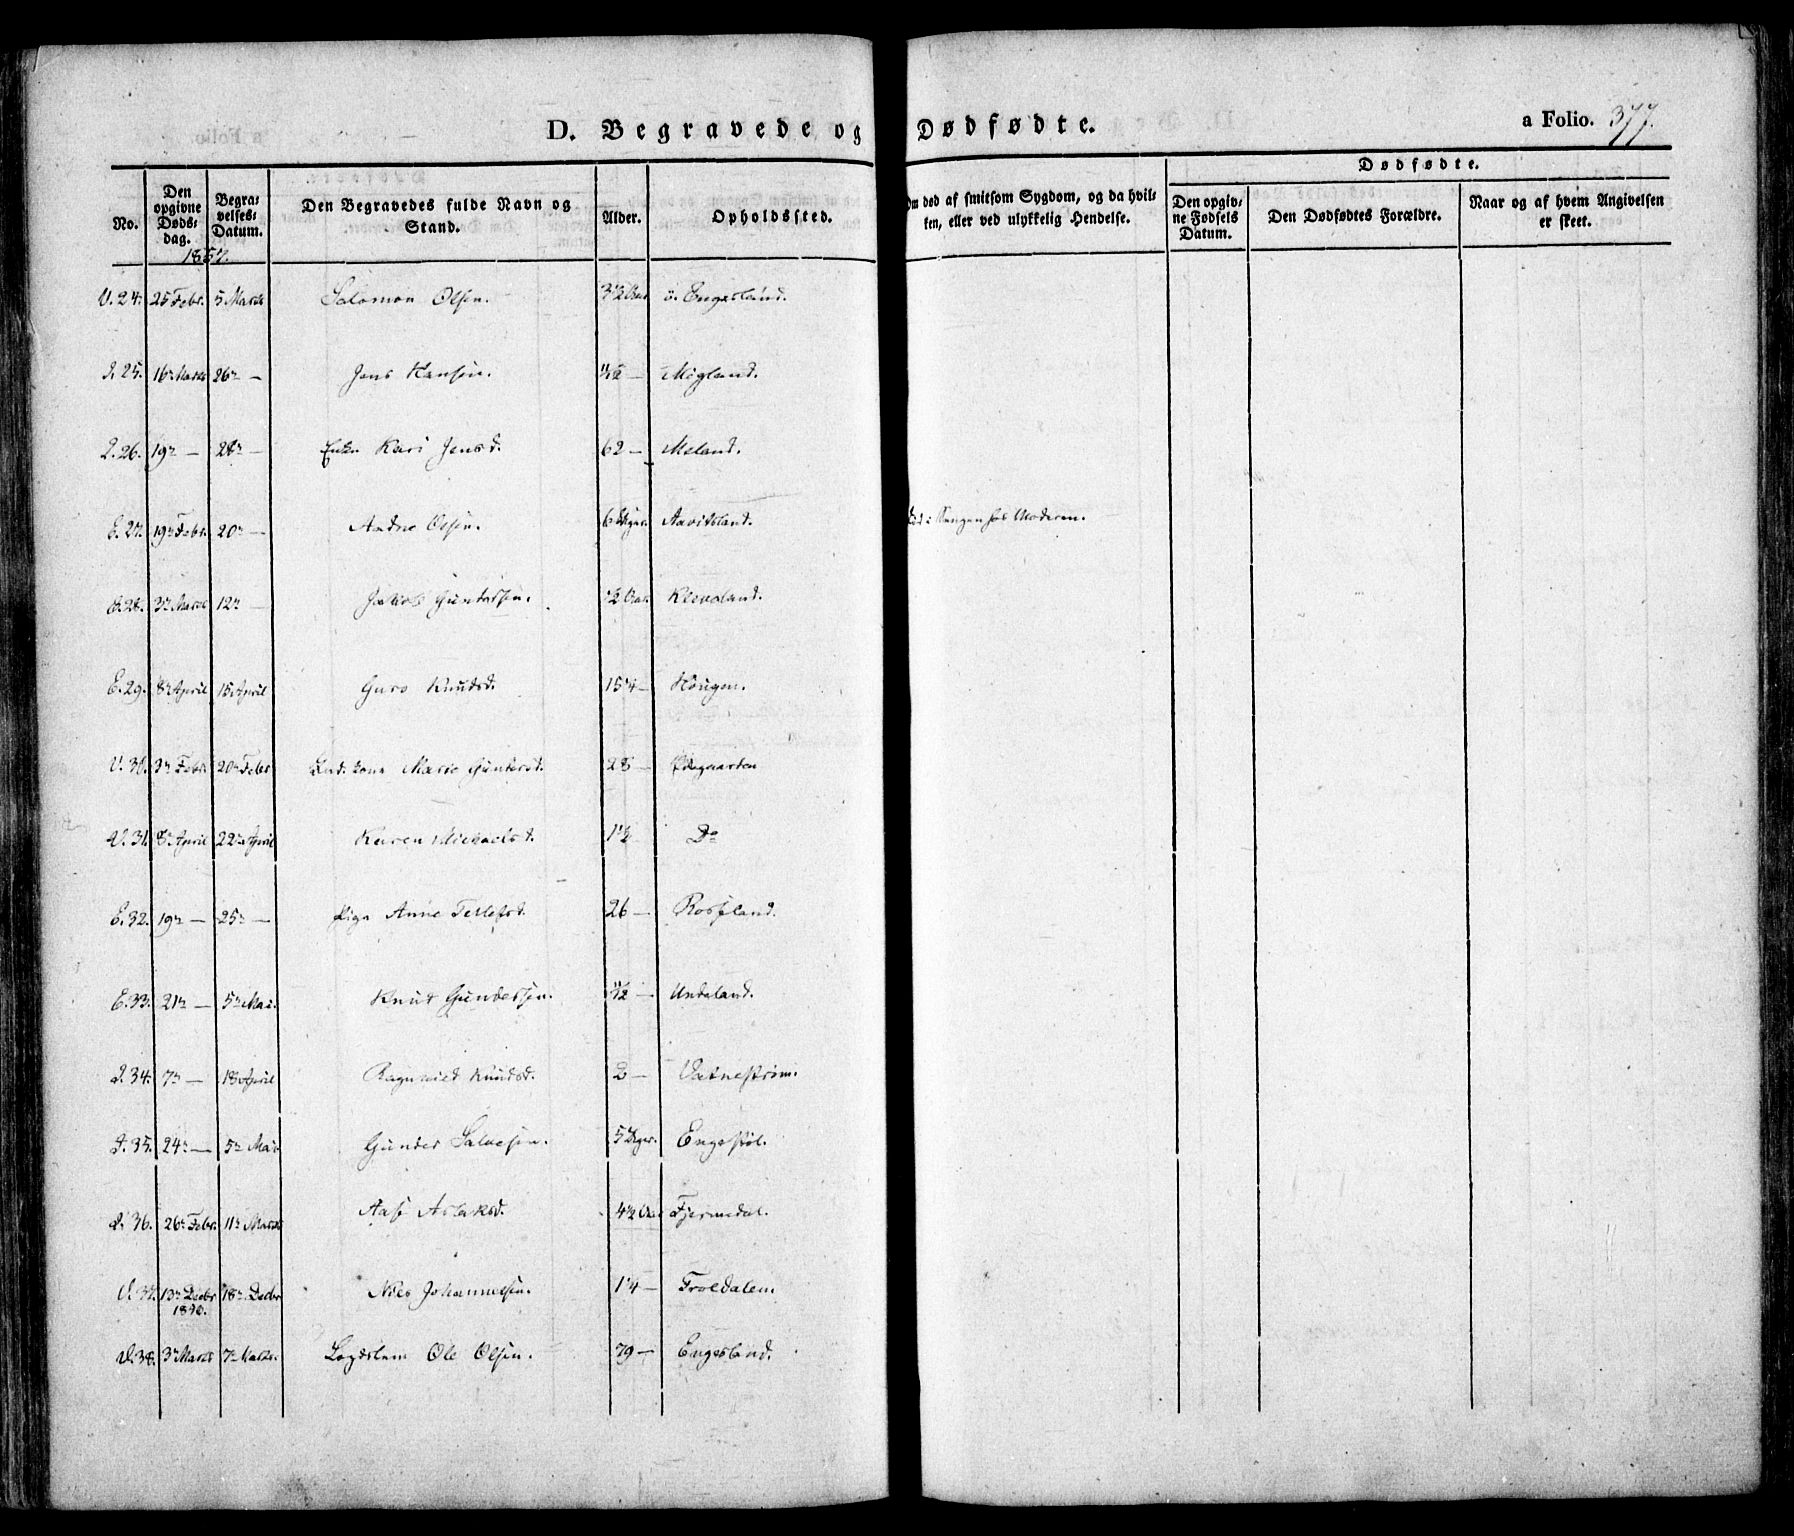 D. Begravede og Dødfødte.
a Folio. 377.
No.
Den opgivne Døds-dag.
Begra-velses-Datum.
Den Begravedes fulde Navn og Stand.
Alder.
Opholdssted.
Om død af smitsom Sygdom, og da hvil-ken, eller ved ulykkelig Hendelse.
Dødfødte.
Den opgiv-ne Fødsels Datum.
Den Dødfødtes Forældre.
Naar og af hvem Angivelsen er skeet.
V. 24. 25 Febr. 5 Marts Salomon Olsen. 3½ ö. Engesland.
25. 16 Marts 26 — Jens Hansen. — Migland.
26. 19 — 28 — Enke Kari Jensd. 62 — Meland.
E. 27. 19 Febr. 20 — Andne Olsen. 6 Aavitsland. i Sengen hos Moderen.
28. 3 Marts 12 — Jakob Gundersen. ½ Klevoland.
E. 29. 8 April 15 April Guro Knudsd. 15 — Hougen.
V. 30. Febr. 20 Febr Marie Gundersd. 28 — Ødegaarden
V. 31. 8 April 22 April Karen Michaelsd. 1½ Do
E. 32. 19 — 25 — Pige Anne Tellefsd. 26 — Rosseland.
E. 33. 21 — 5 Mai. Knut Gundersen. — Undeland.
34. 7 — 18 April Ragnild Knudsd. 2 — Vatnestrøm.
35. 24 — 5 Mai Gunder Salvesen. 5 Engestøl.
36. 26 Febr. 11 Marts Aase Aslaksd. 4½ Fjermedal.
V. 37. 13 Decbr 1850. 18 Decbr Niels Johannesen. 1¼ — Troldalem
V. 38. 3 Marts 7 Marts. Lægdslem Ole Olsen. 79 — Engesland.